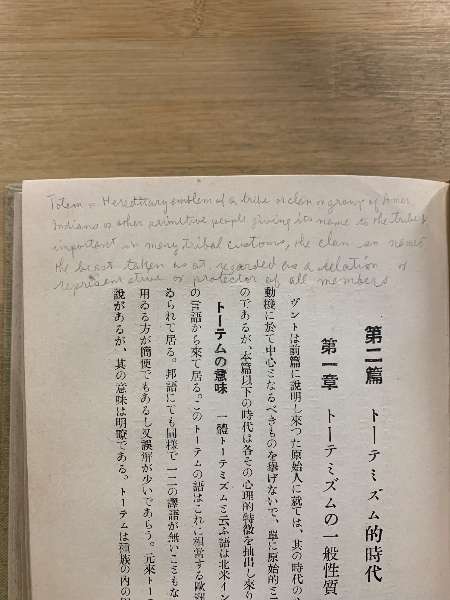 Totem = Hereditary emblem of a tribe or clan or group of Amer.
Indians or other primitive people giving its name to the tribe &
important in many tribal customs, the clan so named
the beast taken as at regarded as a relation or
representative or protector of all members
第二篇　トーテミズム的時代
第一章　トーテミズムの一般性質
ヴントは前篇に說明し來つた原始人に就ては、其の時代の
動機に於て中心となるべきものを擧げないで、單に原始的と
のであるが、本篇以下の時代は各その心理的特徵を抽出し來り
トーテムの意味　一體トーテミズムと云ふ語は北米イン
の言語から來て居る。このトーテムの語はこれに相當する歐
ゐられて居る。邦語にても同樣で一二の譯語が無いこともな
用ゐる方が簡便でもあるし又誤解が少いであらう。元來トー
說があるが、其の意味は明瞭である。トーテムは種族の內の